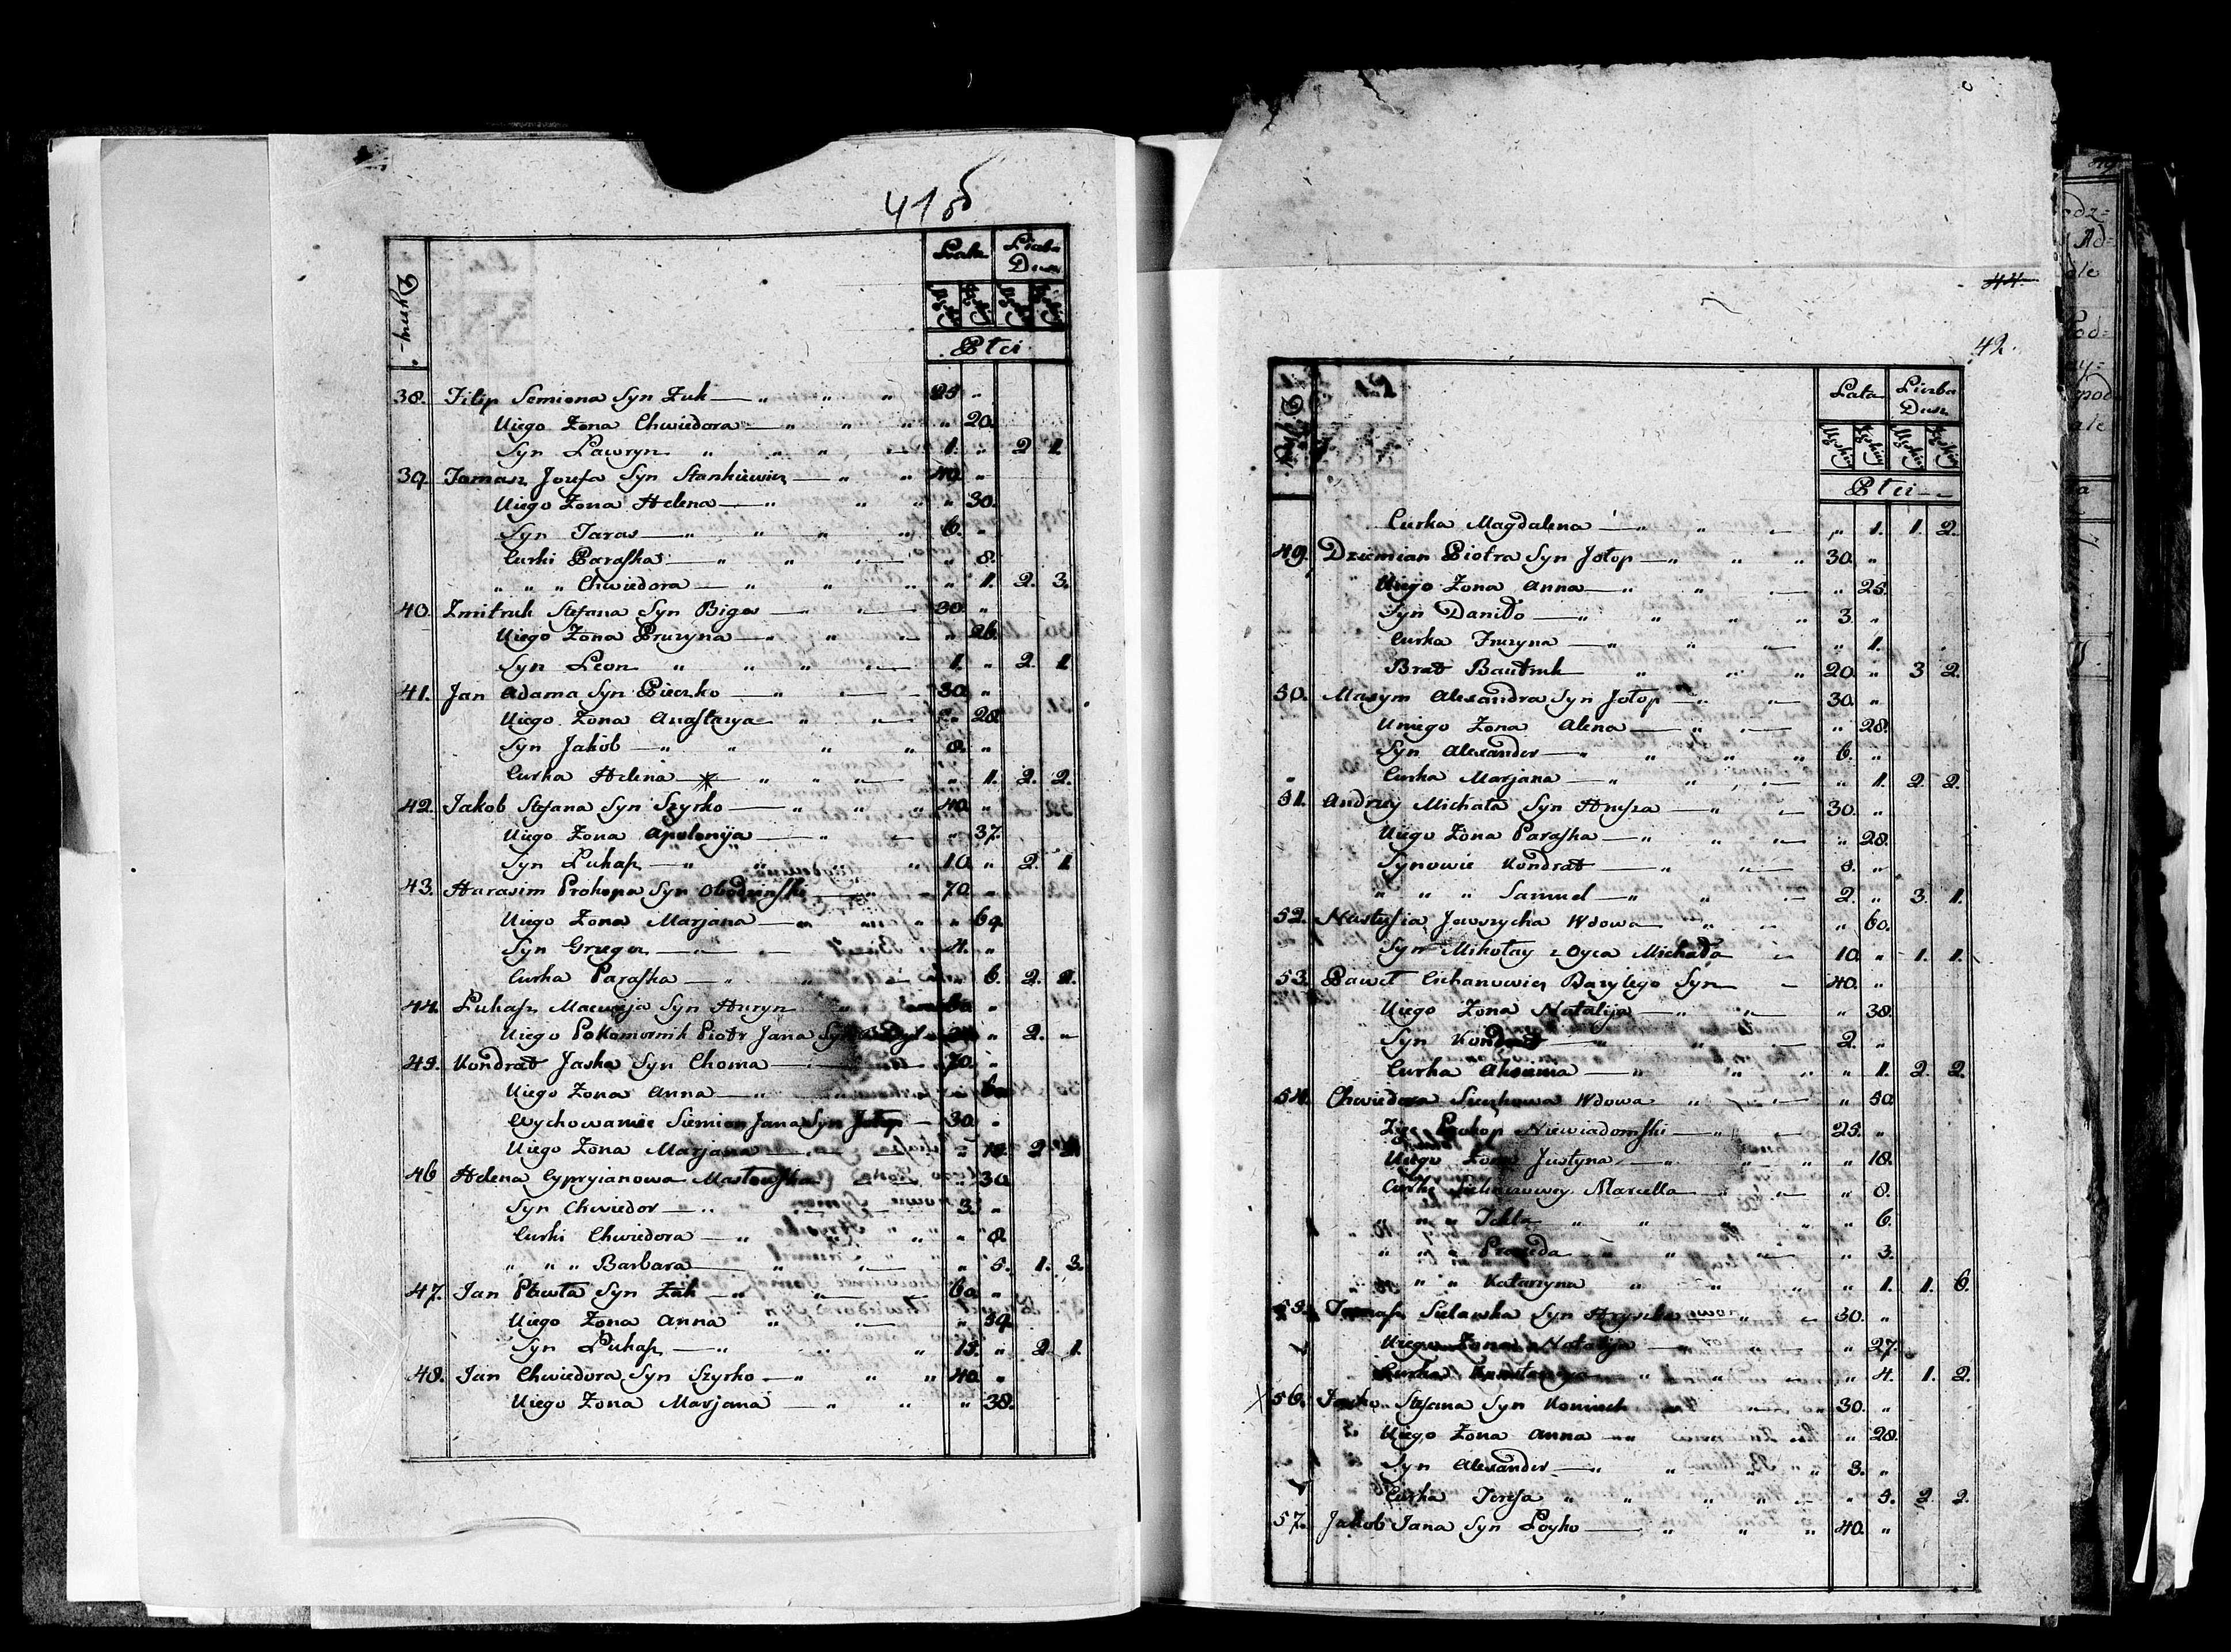 41 об
Dymy
Lata Liczba Dusz
Męskiey Żeńskiey Męskiey Żeńskiey
Płci
38. Filip Semiona Syn Żuk — " " " 25 "
Uiego Żona Chwiedora — " " " " 20.
Syn Ławryn " " " " — 1. " 2 1
39. Tomasz Jozefa Syn Stankiewicz — " " 40. "
Uiego Żona Helena — " " " " 30.
Syn Taras — " " " " 6. "
Curki Paraska — " " " — " 8.
" " " Chwiedora — " " " " 1. 2. 3.
40. Zmitruk Stefana Syn Biga — " " — 30. "
Uiego Żona Pruzyna — " " — " 26.
Syn Leon " " " " — 1. " 2. 1
41. Jan Adama Syn Pieczko — " " — 30. "
Uiego Żona Anastazya — " " — " 28.
Syn Jakob — " " " " 8. "
Curka Helena — * " " " — " 1. 2. 2.
42. Jakob Stefana Syn Szyrko — " " " 40. "
Uiego Żona Apolonija — " — " 37.
Syn Łukasz — " " " 10. " 2. 1
43. Harasim Prokopa Syn Obodzinski — " — 70. "
Uiego Żona Marjana — " " " " 69.
Syn Grzegor — " — 4. "
Curka Paraska — " " — " 6. 2. 2.
44. Łukasz Macieja Syn Huryn
Uiego Pokomornik Piotr Jana Syn " 2. "
45. Kondrat Jaska Syn Choma — 70. "
Uiego Żona Anna — " — " 60
Wychowaniec Siemion Jana Syn Jotop — 30. "
Uiego Żona Marjana — " 2
46 Helena Cypryianowa Masłowska — " 30.
Syn Chwiedor — " — 3. "
Curki Chwiedora — " " " 8.
" " " Barbara — " " — " 5. 1. 3.
47. Jan Pawła Syn Żuk — " " — 60. "
Uiego Żona Anna " " — " 59.
Syn Łukasz — " " " 15. " 2. 1.
48. Jan Chwiedora Syn Szyrko — " " " 40. "
Uiego Żona Marjana — " " " 38.
44
42.
Dymy
Lata Liczba Dusz
Męskiey Żeńskiey Męskiey Żeńskiey
Płci
Curka Magdalena — " " — " 1. 1. 2.
49. Dziemian Piotra Syn Jotop — " " " 30. "
Uiego Żona Anna — " " — " 25.
Syn Daniło — " " " " 3. "
Curka Fruzyna — " " — " 1.
Brat Bautruk " " " 20. " 3 2.
50. Maxym Alexandra Syn Jotop — " — 30. "
Uniego Żona Alena — " — " 28.
Syn Alexander — " " " " 6. "
Curka Marjana — " " — " 1. 2 2.
51. Andrzey Michała Syn Hrysza — " — 30. "
Uiego Żona Paraska — " " — " 28.
Synowie Kondrat — " " — 8. "
" " " Samuel — " " — 2. " 3. 1.
52. Nastysia Jawszycha Wdowa " — " 60.
Syn Mikołay z Oyca Michała — 10. " 1. 1.
53. Paweł Cichanowicz Bazylego Syn — 40. "
Uiego Żona Natalija — " " — " 38.
Syn Kondrat — " " — 2. "
Curka — " " " " 1. 2. 2.
54. Chwiedora Wdowa " — " 50
Zięc Prokop Niewiadomski — " — 25. "
Uiego Żona Justyna — " " " " 18.
Curki Marcella — " — " 8.
" " " Tekla — " " " " 6.
" " " — " " — " 3.
" " " Katarzyna " " " " 1. 1. 6.
55. Tomasz Sielawka Syn " — 30. "
Uiego Żona Natalija — " — " 27.
Curka " " — " 4. 1. 2.
x 56. Jasko Stefana Syn " 30. "
Uiego Żona Anna — " " 28.
Syn Alexander — " " " " 3. "
Curka Teresa " " " " — " 5. 2. 2.
57. Jakob Jana Syn Łoyko — " " " 40. "